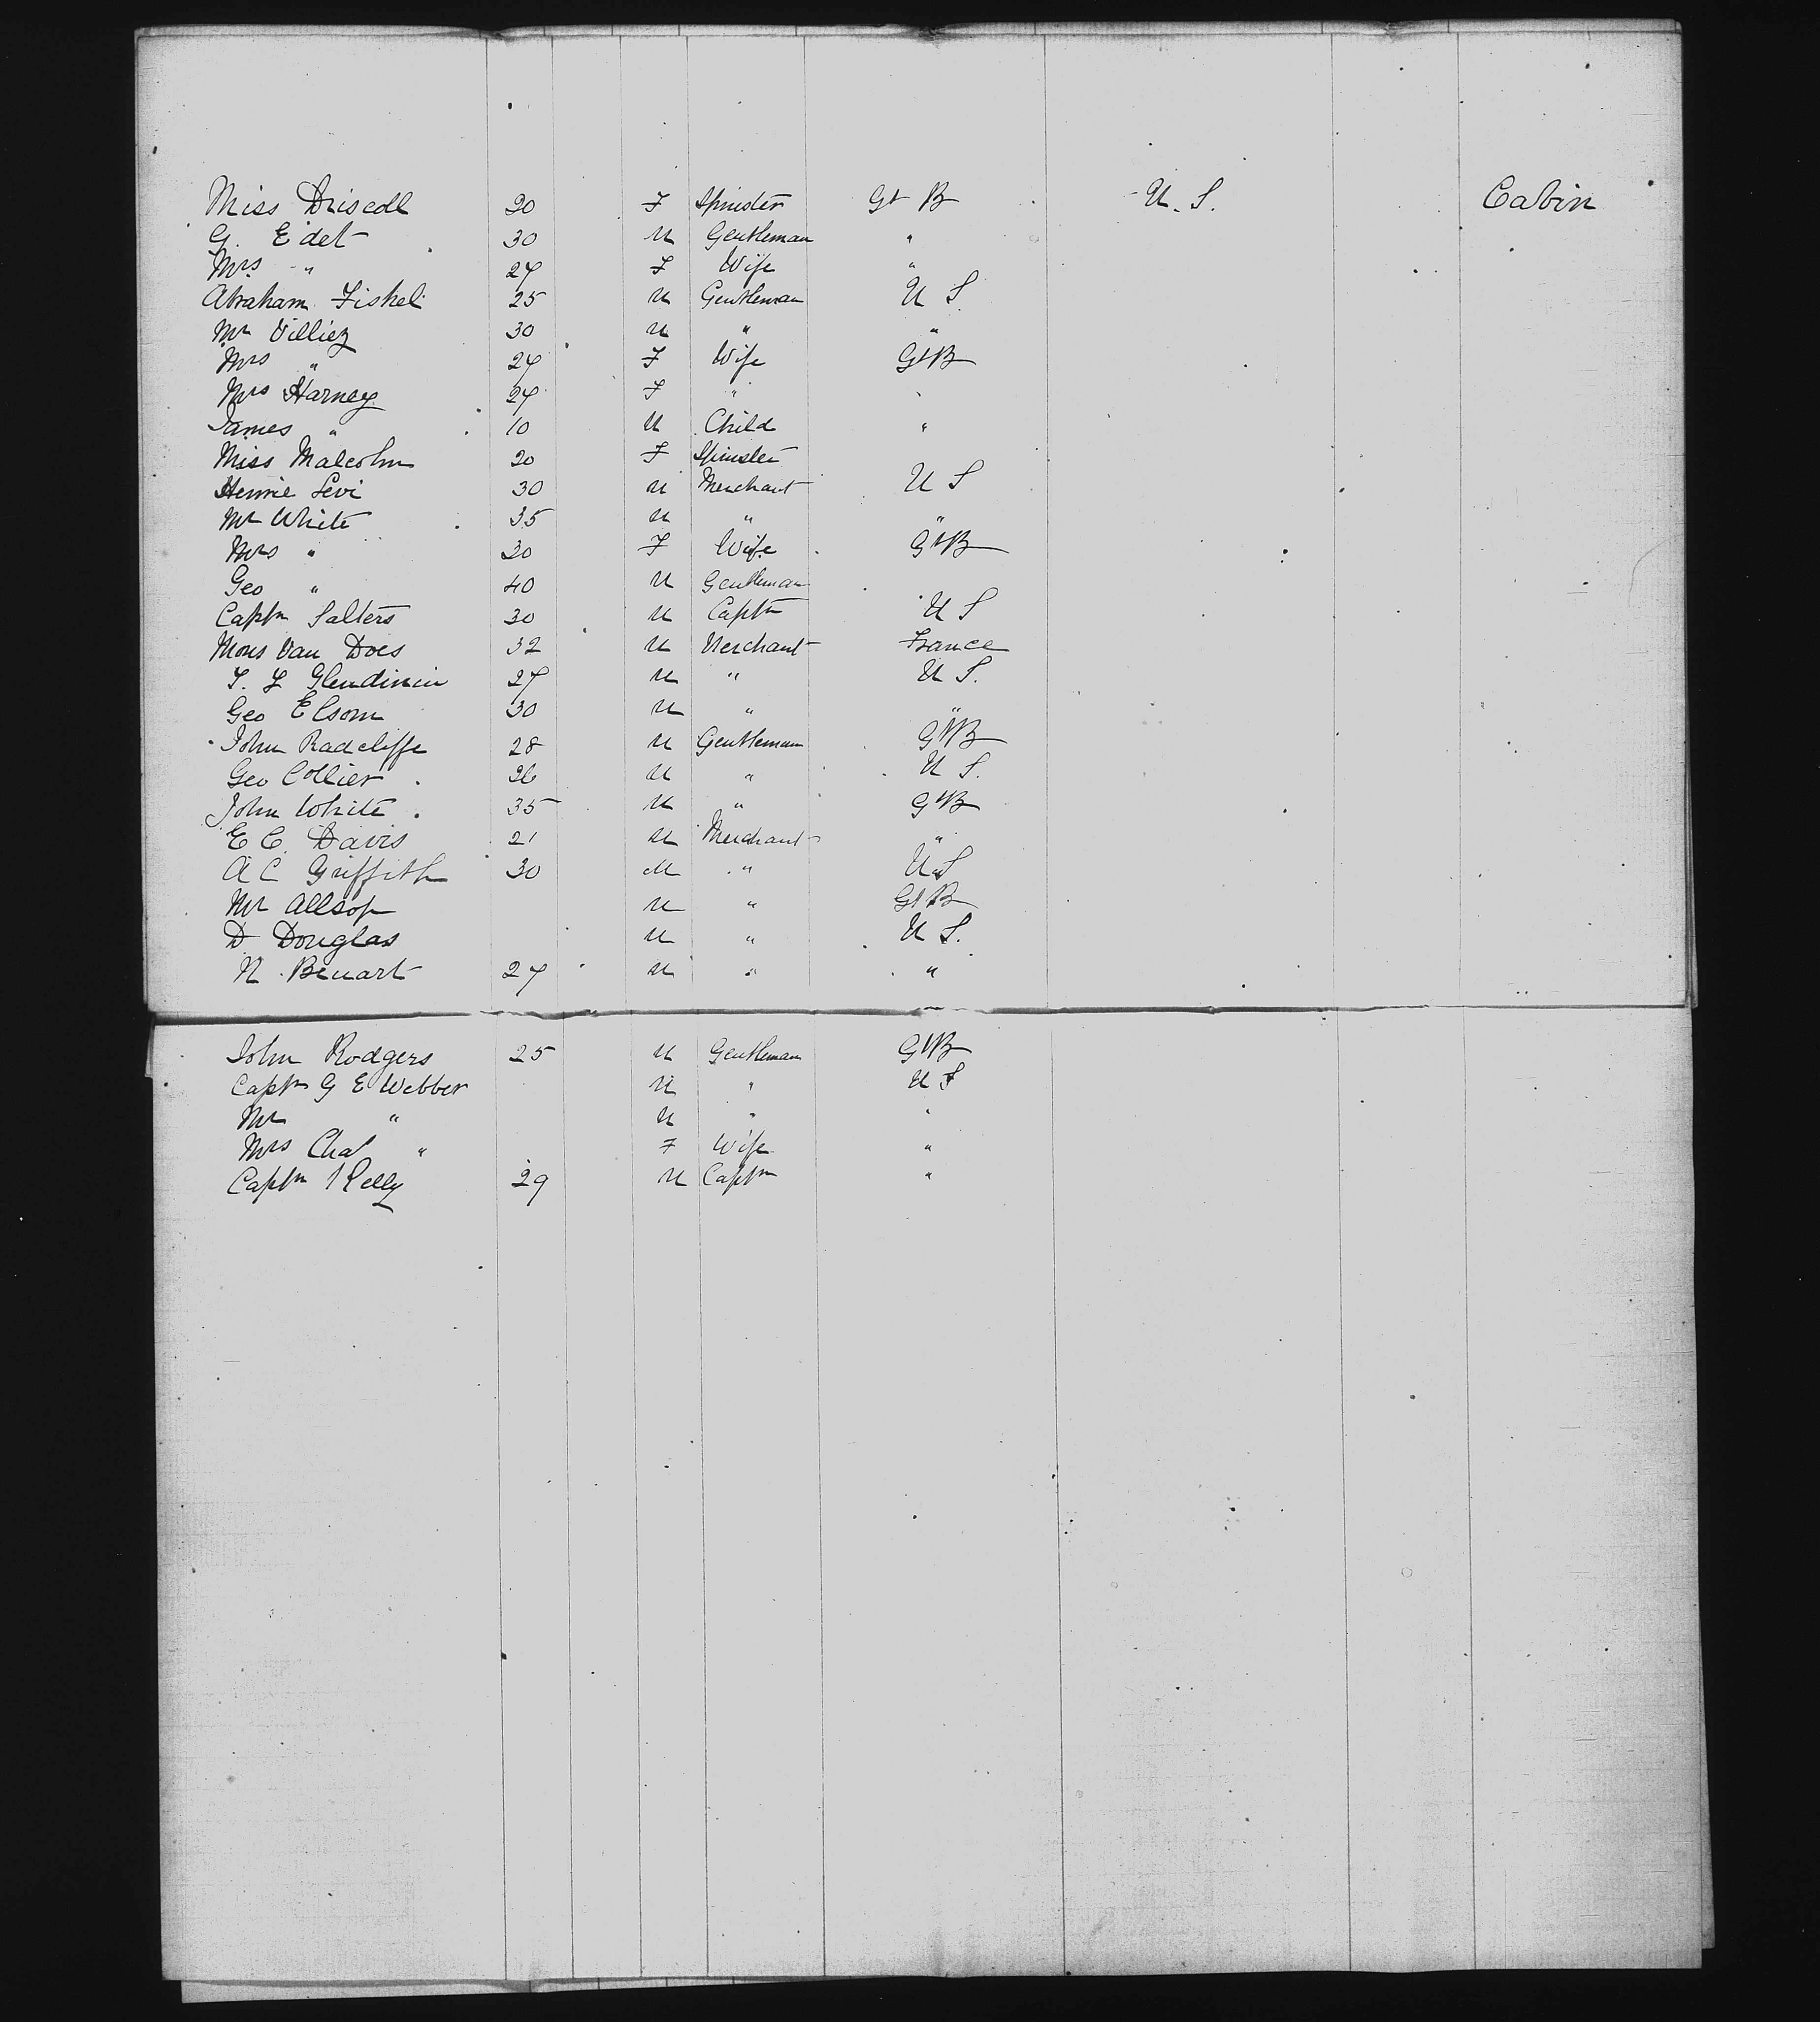 Miss Driscoll 20 F Spinster Gt B U. S. Cabin
G. Edet 30 M Gentleman "
Mrs " 27 F Wife "
Abraham Fishel 25 M Gentleman U S
Mr Villiez 30 M " "
Mrs " 27 F Wife Gt B
Mrs Harney 27 F "
James " 10 M Child "
Miss Malcolm 20 F Spinster
Henrie Levi 30 M Merchant U S
Mr White 35 M " "
Mrs " 30 F Wife Gt B
Geo " 40 M Gentleman
Captn Salters 30 M Captn U S
Mons Van Does 32 M Merchant France
Glendinin 27 M " U S.
Geo Elsom 30 M " "
John Radcliffe 28 M Gentleman Gt B
Geo Collier 26 M " U S.
John White 35 M " Gt B
E C. Davis 21 M Merchant "
A C Griffith 30 M " U S
Mr Allsop M " Gt B
D Douglas M " U S.
N. Benart 27 M " "
John Rodgers 25 M Gentleman Gt B
Captn G E Webber M " U S
Mr " M " "
Mrs Chas " F Wife "
Captn Kelly 29 M Captn "